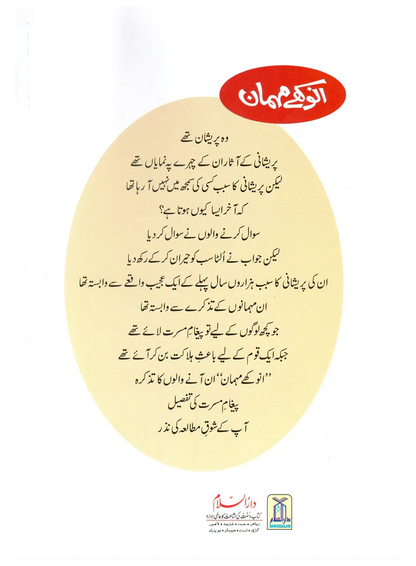 انوکھے مہمان
وہ پریشان تھے
پریشانی کے آثار ان کے چہرے پہ نمایاں تھے
لیکن پریشانی کا سبب کسی کی سمجھ میں نہیں آ رہا تھا
کہ آخر ایسا کیوں ہوتا ہے؟
سوال کرنے والوں نے سوال کر دیا
لیکن جواب نے اُلٹا سب کو حیران کر کے رکھ دیا
ان کی پریشانی کا سبب ہزاروں سال پہلے کے ایک عجیب واقعے سے وابستہ تھا
ان مہمانوں کے تذکرے سے وابستہ تھا
جو کچھ لوگوں کے لیے تو پیغامِ مسرت لائے تھے
جبکہ ایک قوم کے لیے باعثِ ہلاکت بن کر آئے تھے
’’انوکھے مہمان‘‘ ان آنے والوں کا تذکرہ
پیغامِ مسرت کی تفصیل
آپ کے شوقِ مطالعہ کی نذر
دارالسلام
کتاب و سنت کی اشاعت کا عالمی ادارہ
DARUSSALAM